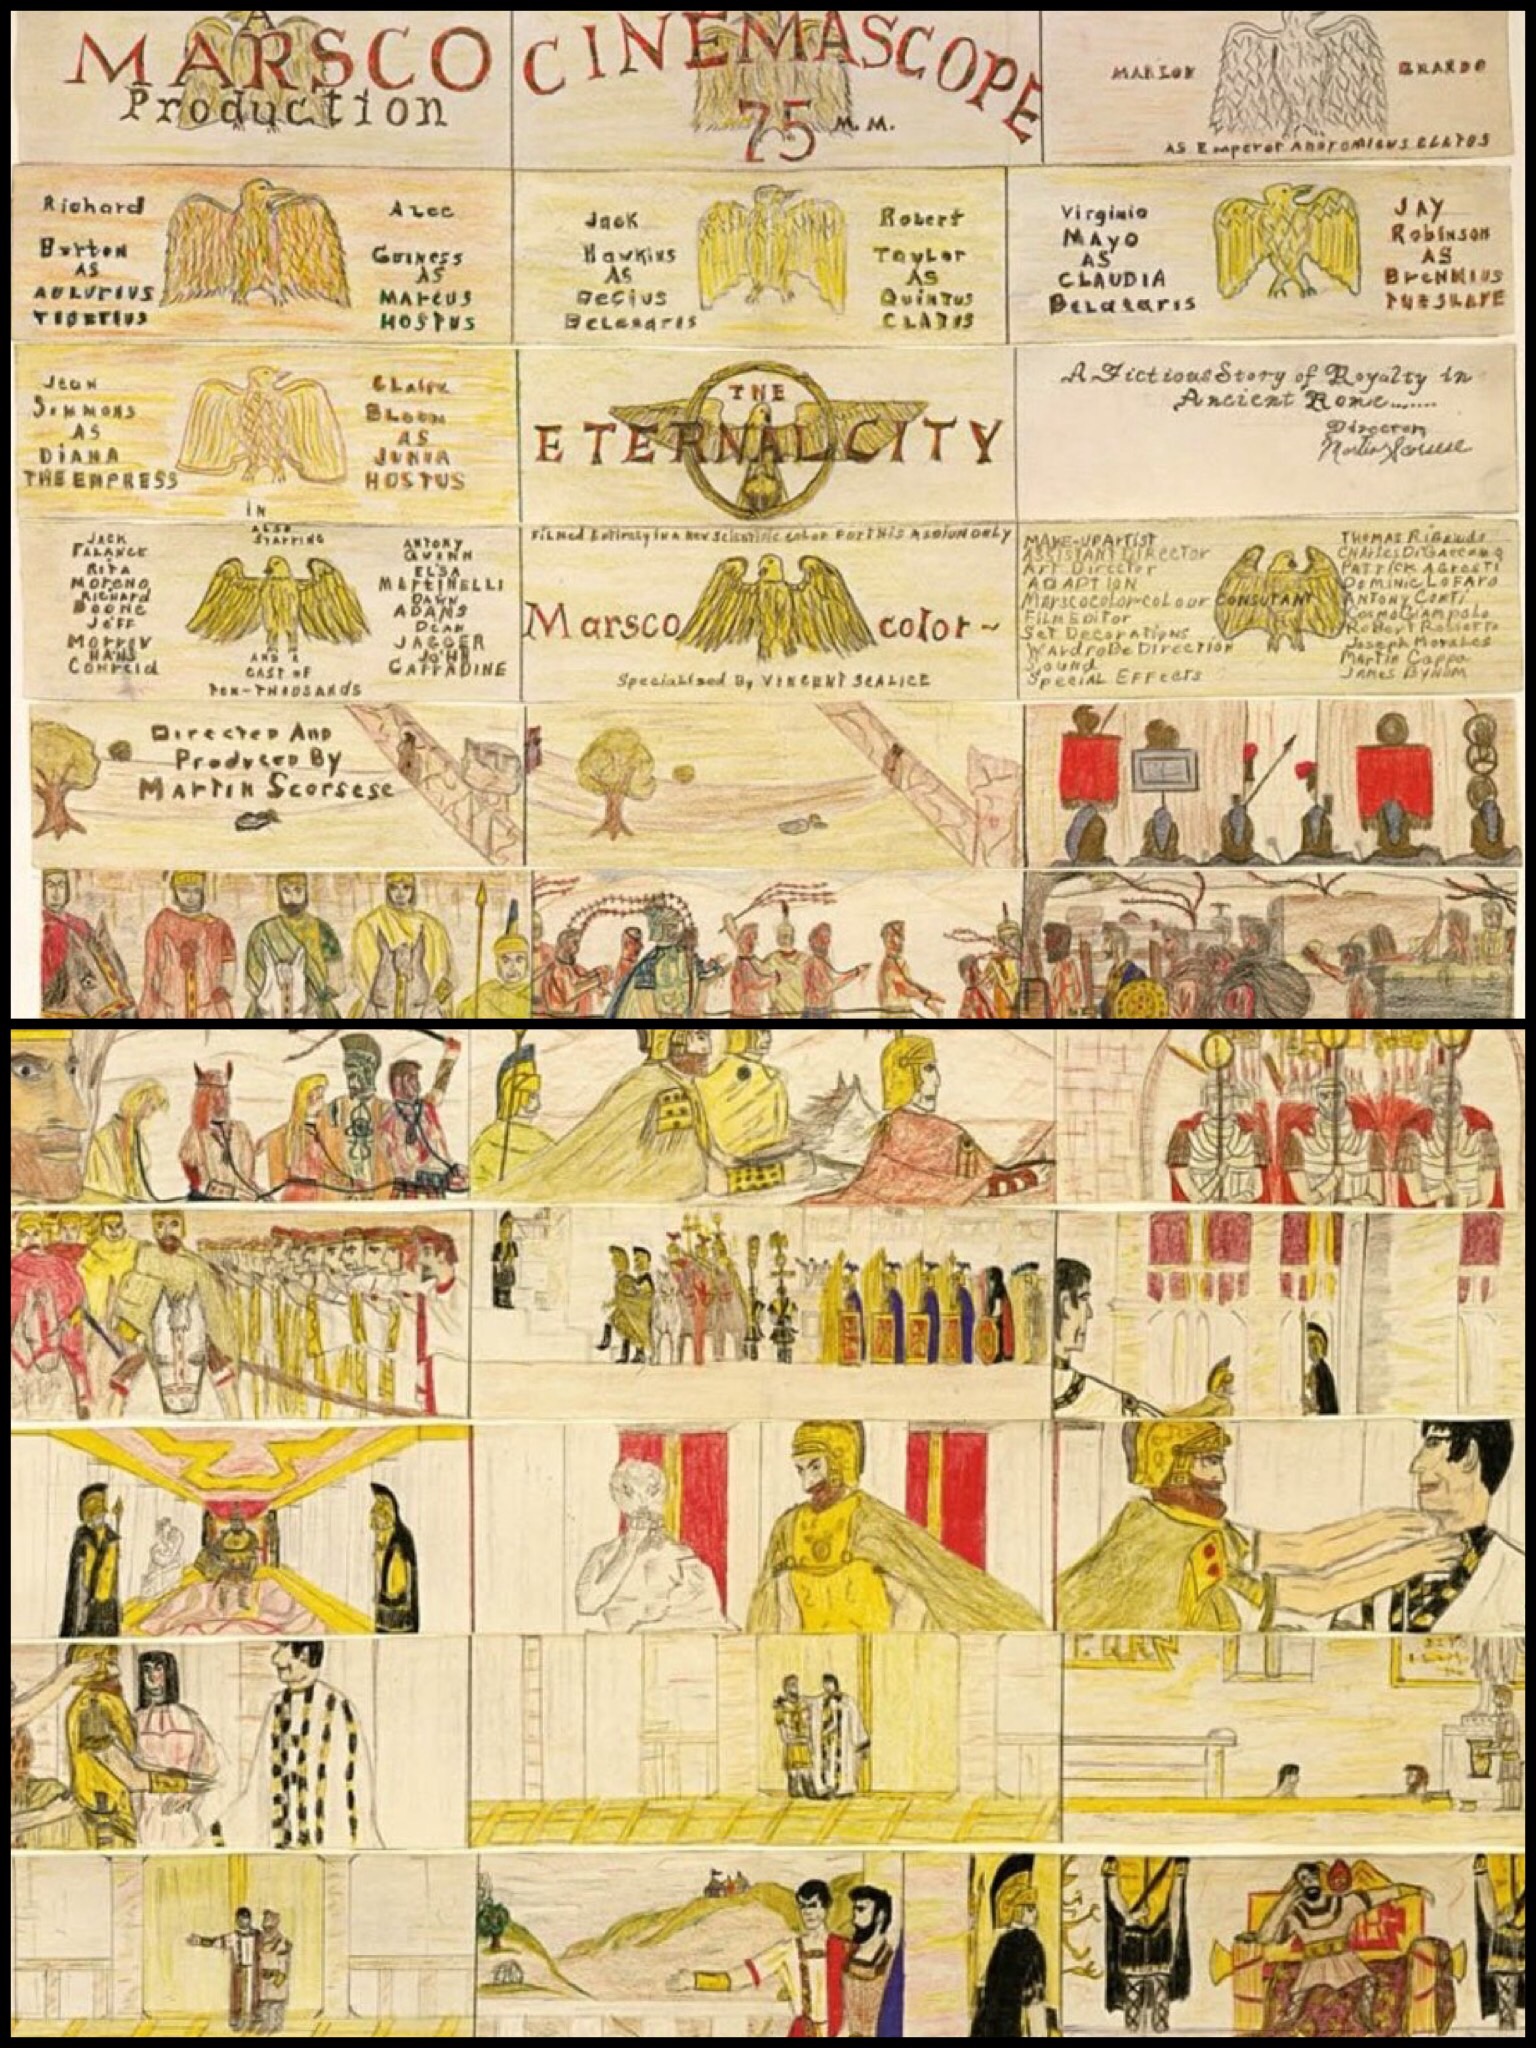 A
MARSCO
Production
CINEMASCOPE
75 M.M.
MARLON BRANDO
AS Emperor
Richard
Burton
AS
AULURIUS
TIBERIUS
Alec
Guiness
AS
MARCUS
HOSTUS
Jack
Hawkins
AS
Decius
Belasaris
Robert
Taylor
AS
Quintus
CLATUS
Virginia
MAYO
AS
CLAUDIA
Belasaris
JAY
Robinson
AS
Brennius
THE SLAVE
Jean
Simmons
AS
DIANA
THE EMPRESS
Claire
Bloom
AS
JUNIA
HOSTUS
IN
THE
ETERNAL CITY
A Fictious Story of Royalty in
Ancient Rome.......
Director
Martin Scorsese
ALSO
STARRING
JACK
PALANCE
RITA
MORENO
RICHARD
BOONE
JEFF
MORROW
HANS
CONREID
ANTONY
QUINN
ELSA
MARTINELLI
DAWN
ADAMS
DEAN
JAGGER
JOHN
CARRADINE
AND A
CAST OF
TEN-THOUSANDS
Filmed Entirely in a new Scientific color For This Medium Only
Marsco color~
Specialised By VINCENT SCALICE
MAKE-UP Artist
ASSISTANT Director
Art Director
ADAPTION
Marscocolor colour CONSUTANT
Film Editor
Set Decorations
Wardrobe Direction
Sound
Special Effects
THOMAS
Charles
PATRICK
DOMINIC LOFARO
ANTONY CONTI
Robert
Joseph Morales
Martin Cappa
James Bynom
Directed And
Produced By
Martin Scorsese